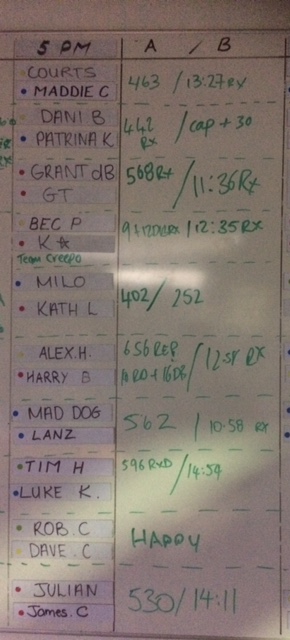 5 PM A / B
COURTS
MADDIE C
463 / 13:27 RX
DANI B
PATRINA K
442 / cap + 30
RX
GRANT dB
GT
568 Rx / 11:36 Rx
BEC P
K ☆
Team Creepo
/ 12:35 RX
MILO
KATH L
402 / 252
ALEX.H.
HARRY B
656 REP / 12:58 RX
MAD DOG
LANZ
562 / 10:58 RX
TIM H
LUKE K.
596 RXD / 14:54
ROB.C
DAVE.C
HAPPY
JULIAN
James.C
530 / 14:11